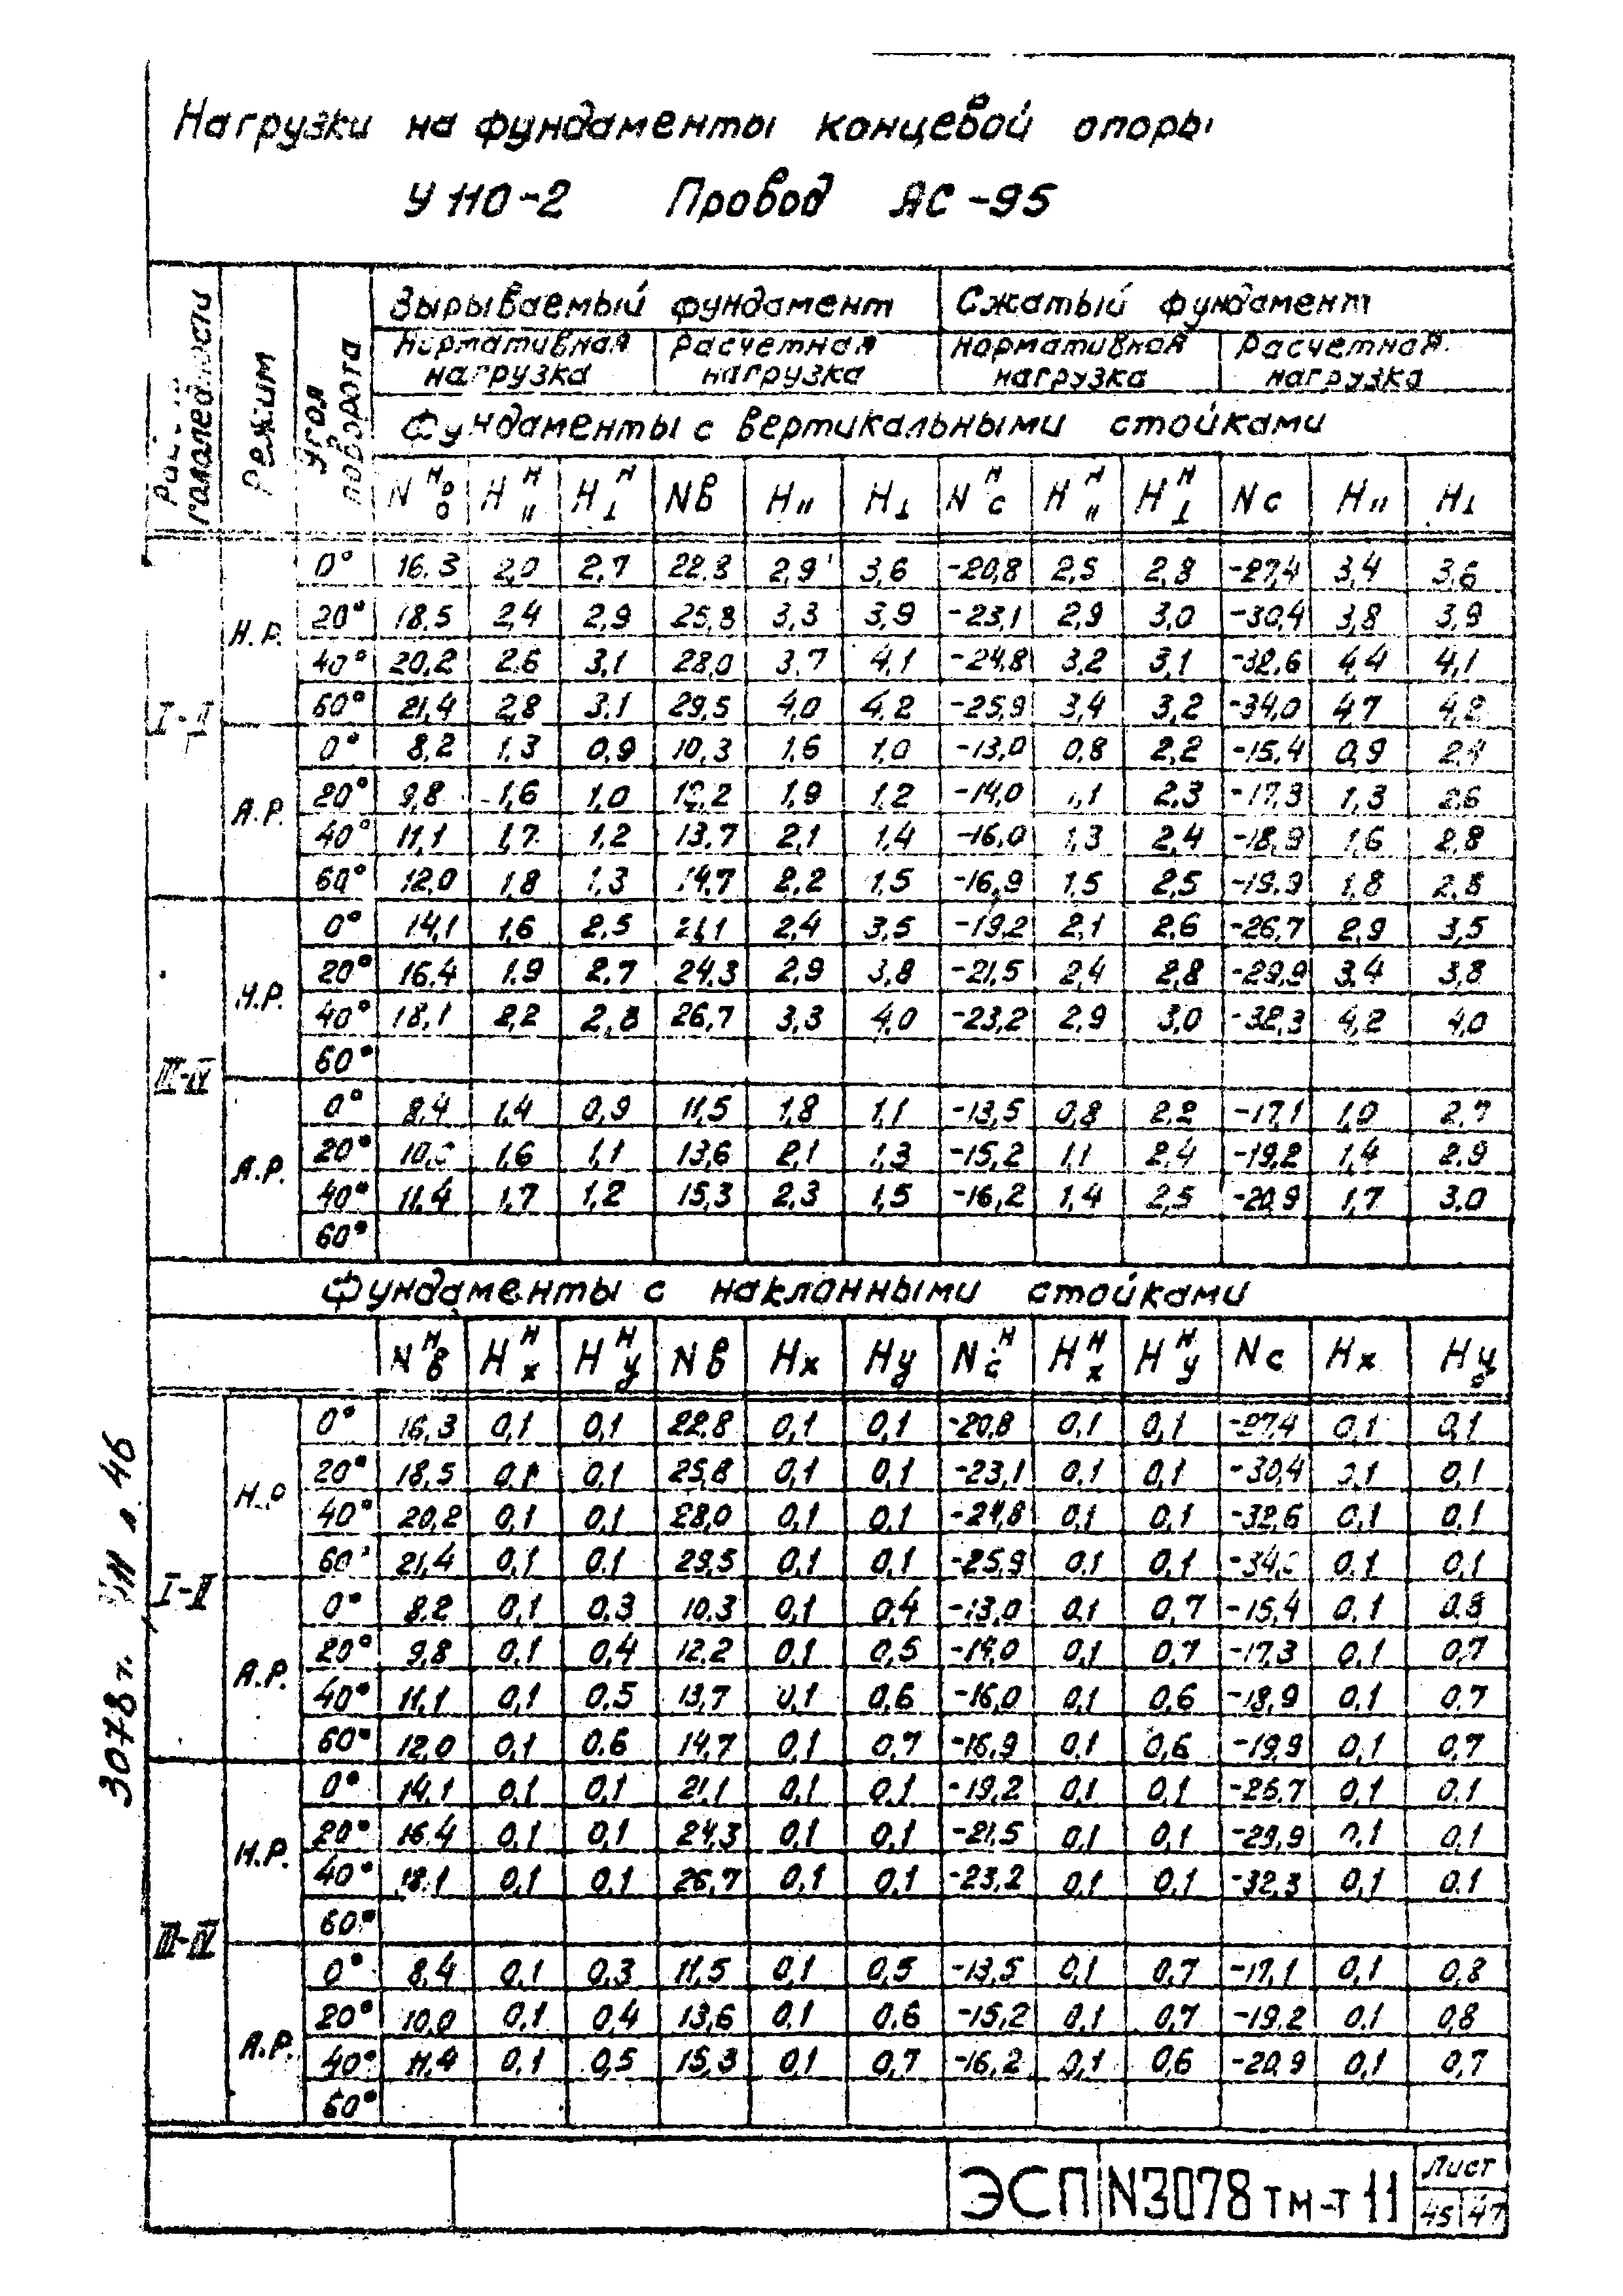 Нагрузки на фундаменты концевой опоры
У 110-2 Провод АС-95
Район гололедности
Режим
Угол поворота
Вырываемый фундамент Сжатый фундамент
Нормативная нагрузка Расчетная нагрузка Нормативная нагрузка Расчетная нагрузка
Фундаменты с вертикальными стойками
Nᴴв Hᴴ॥ Hᴴ⊥ Nв H॥ H⊥ Nᴴс Hᴴ॥ Hᴴ⊥ Nс H॥ H⊥
I-II
Н.Р.
0° 16,3 2,0 2,7 22,8 2,9 3,6 -20,8 2,5 2,8 -27,4 3,4 3,6
20° 18,5 2,4 2,9 25,8 3,3 3,9 -23,1 2,9 3,0 -30,4 3,8 3,9
40° 20,2 2,6 3,1 28,0 3,7 4,1 -24,8 3,2 3,1 -32,6 4,4 4,1
60° 21,4 2,8 3,1 29,5 4,0 4,2 -25,9 3,4 3,2 -34,0 4,7 4,2
А.Р.
0° 8,2 1,3 0,9 10,3 1,6 1,0 -13,0 0,8 2,2 -15,4 0,9 2,4
20° 9,8 1,6 1,0 12,2 1,9 1,2 -14,0 1,1 2,3 -17,3 1,3 2,6
40° 11,1 1,7 1,2 13,7 2,1 1,4 -16,0 1,3 2,4 -18,9 1,6 2,8
60° 12,0 1,8 1,3 14,7 2,2 1,5 -16,9 1,5 2,5 -19,9 1,8 2,8
III-IV
Н.Р.
0° 14,1 1,6 2,5 21,1 2,4 3,5 -19,2 2,1 2,6 -26,7 2,9 3,5
20° 16,4 1,9 2,7 24,3 2,9 3,8 -21,5 2,4 2,8 -29,9 3,4 3,8
40° 18,1 2,2 2,8 26,7 3,3 4,0 -23,2 2,9 3,0 -32,3 4,2 4,0
60°
А.Р.
0° 8,4 1,4 0,9 11,5 1,8 1,1 -13,5 0,8 2,2 -17,1 1,0 2,7
20° 10,0 1,6 1,1 13,6 2,1 1,3 -15,2 1,1 2,4 -19,2 1,4 2,9
40° 11,4 1,7 1,2 15,3 2,3 1,5 -16,2 1,4 2,5 -20,9 1,7 3,0
60°
Фундаменты с наклонными стойками
Nᴴв Hᴴх Hᴴу Nв Hх Hу Nᴴс Hᴴх Hᴴу Nс Hх Hу
I-II
Н.Р
0° 16,3 0,1 0,1 22,8 0,1 0,1 -20,8 0,1 0,1 -27,4 0,1 0,1
20° 18,5 0,1 0,1 25,8 0,1 0,1 -23,1 0,1 0,1 -30,4 0,1 0,1
40° 20,2 0,1 0,1 28,0 0,1 0,1 -24,8 0,1 0,1 -32,6 0,1 0,1
60° 21,4 0,1 0,1 29,5 0,1 0,1 -25,9 0,1 0,1 -34,0 0,1 0,1
А.Р.
0° 8,2 0,1 0,3 10,3 0,1 0,4 -13,0 0,1 0,7 -15,4 0,1 0,8
20° 9,8 0,1 0,4 12,2 0,1 0,5 -14,0 0,1 0,7 -17,3 0,1 0,7
40° 11,1 0,1 0,5 13,7 0,1 0,6 -16,0 0,1 0,6 -18,9 0,1 0,7
60° 12,0 0,1 0,6 14,7 0,1 0,7 -16,9 0,1 0,6 -19,9 0,1 0,7
III-IV
Н.Р.
0° 14,1 0,1 0,1 21,1 0,1 0,1 -19,2 0,1 0,1 -26,7 0,1 0,1
20° 16,4 0,1 0,1 24,3 0,1 0,1 -21,5 0,1 0,1 -29,9 0,1 0,1
40° 18,1 0,1 0,1 26,7 0,1 0,1 -23,2 0,1 0,1 -32,3 0,1 0,1
60°
А.Р.
0° 8,4 0,1 0,3 11,5 0,1 0,5 -13,5 0,1 0,7 -17,1 0,1 0,8
20° 10,0 0,1 0,4 13,6 0,1 0,6 -15,2 0,1 0,7 -19,2 0,1 0,8
40° 11,4 0,1 0,5 15,3 0,1 0,7 -16,2 0,1 0,6 -20,9 0,1 0,7
60°
3078 т. л. 46
ЭСП N3078 тм-т 11
Лист
45 47